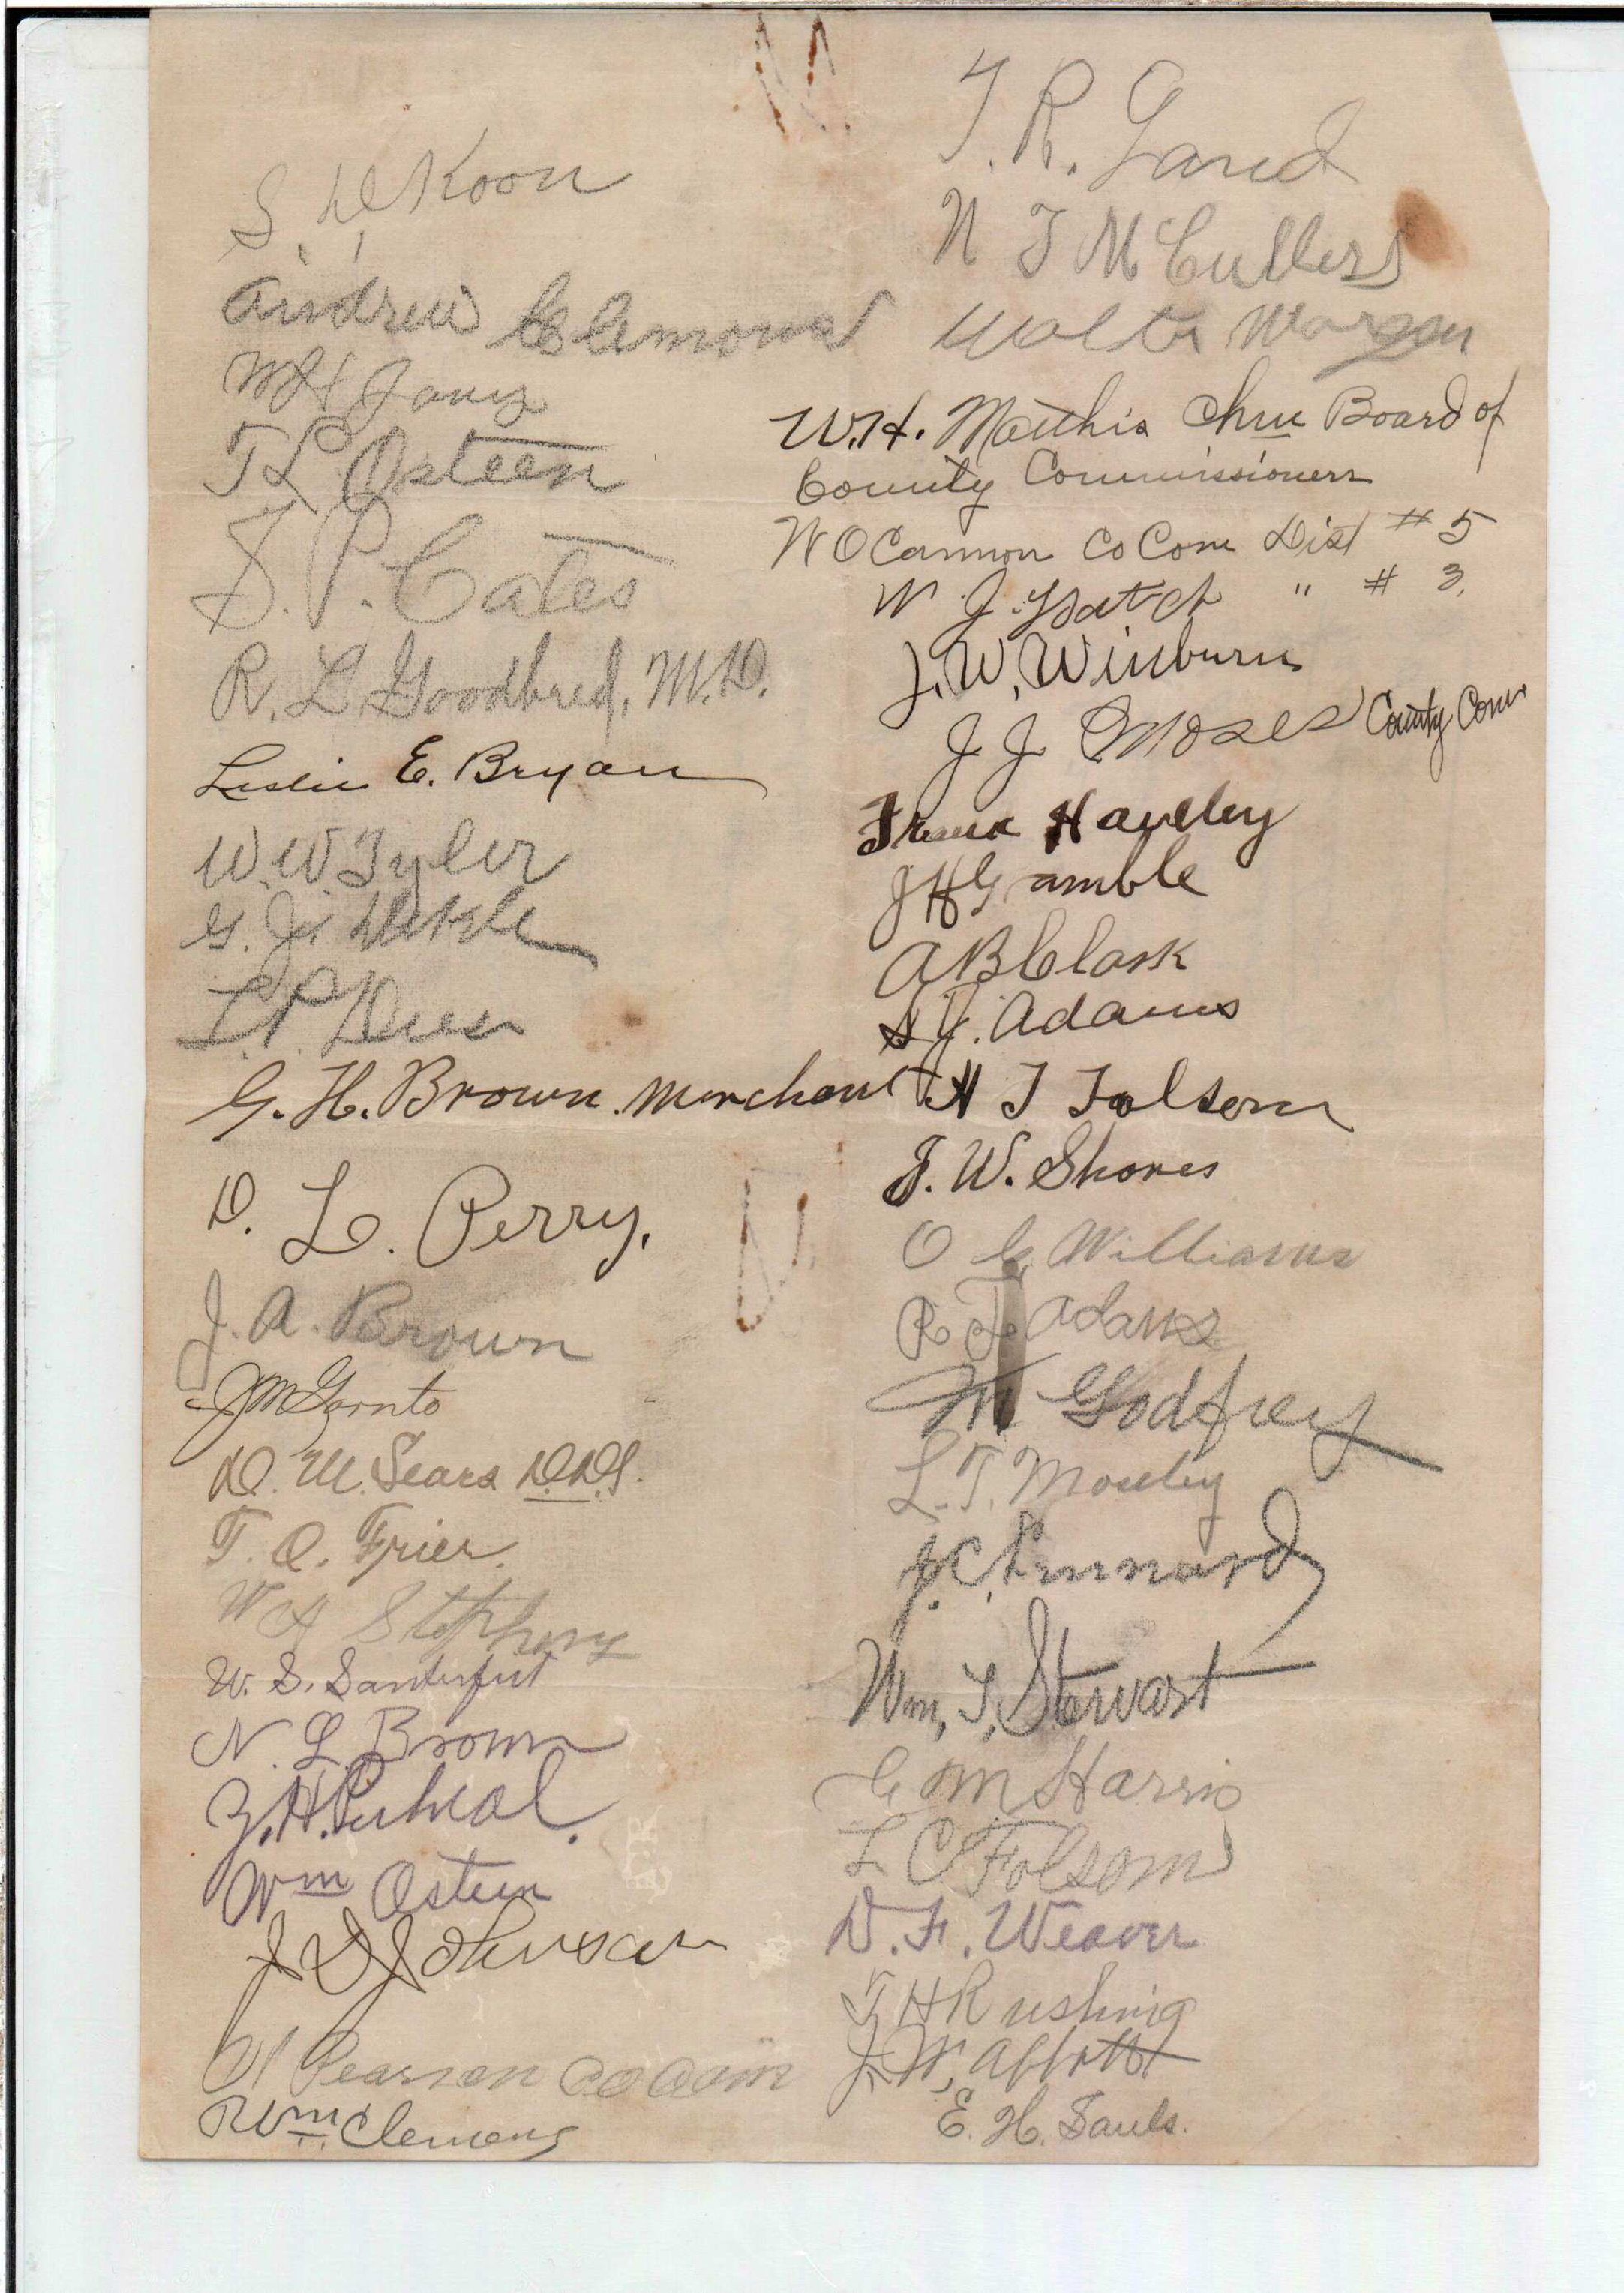 S. D. Koon
Andrew
W H Jony
T L Osteen
S. P. Cates
R. L. Goodbred, M.D.
Leslie E. Bryan
W. W Tyler
G. J. Dekle
L. P. Dees
G. H. Brown. Merchant
D. L. Perry.
J. A. Brown
J M Gornto
D. M. Sears D.D.S.
T. O. Frier.
W A Stephens
W. S. Santerfeit
N. L. Brown
Z. H.
Wm Osteen
J D Johnson
Pearson co com
R Wm. Clemens
T. R. Land
N T McCullers
Walter
W. H. Matthis Chm Board of
County Commissioners
W O Cannon Co Com Dist # 5
W. J. Hatch " # 3.
J. W. Winburn
J J Moses County Com
Frank Handley
J H Gamble
A B Clark
S J. Adams
H T Folsom
J. W. Shores
O G Williams
R L Adams
M Godfrey
L. T. Mosely
J. C. Kinnard
Wm. T. Stewart
G M Harris
L C Folsom
D. F. Weaver
T H Rushing
J. W. Abbott
E. H. Sauls.